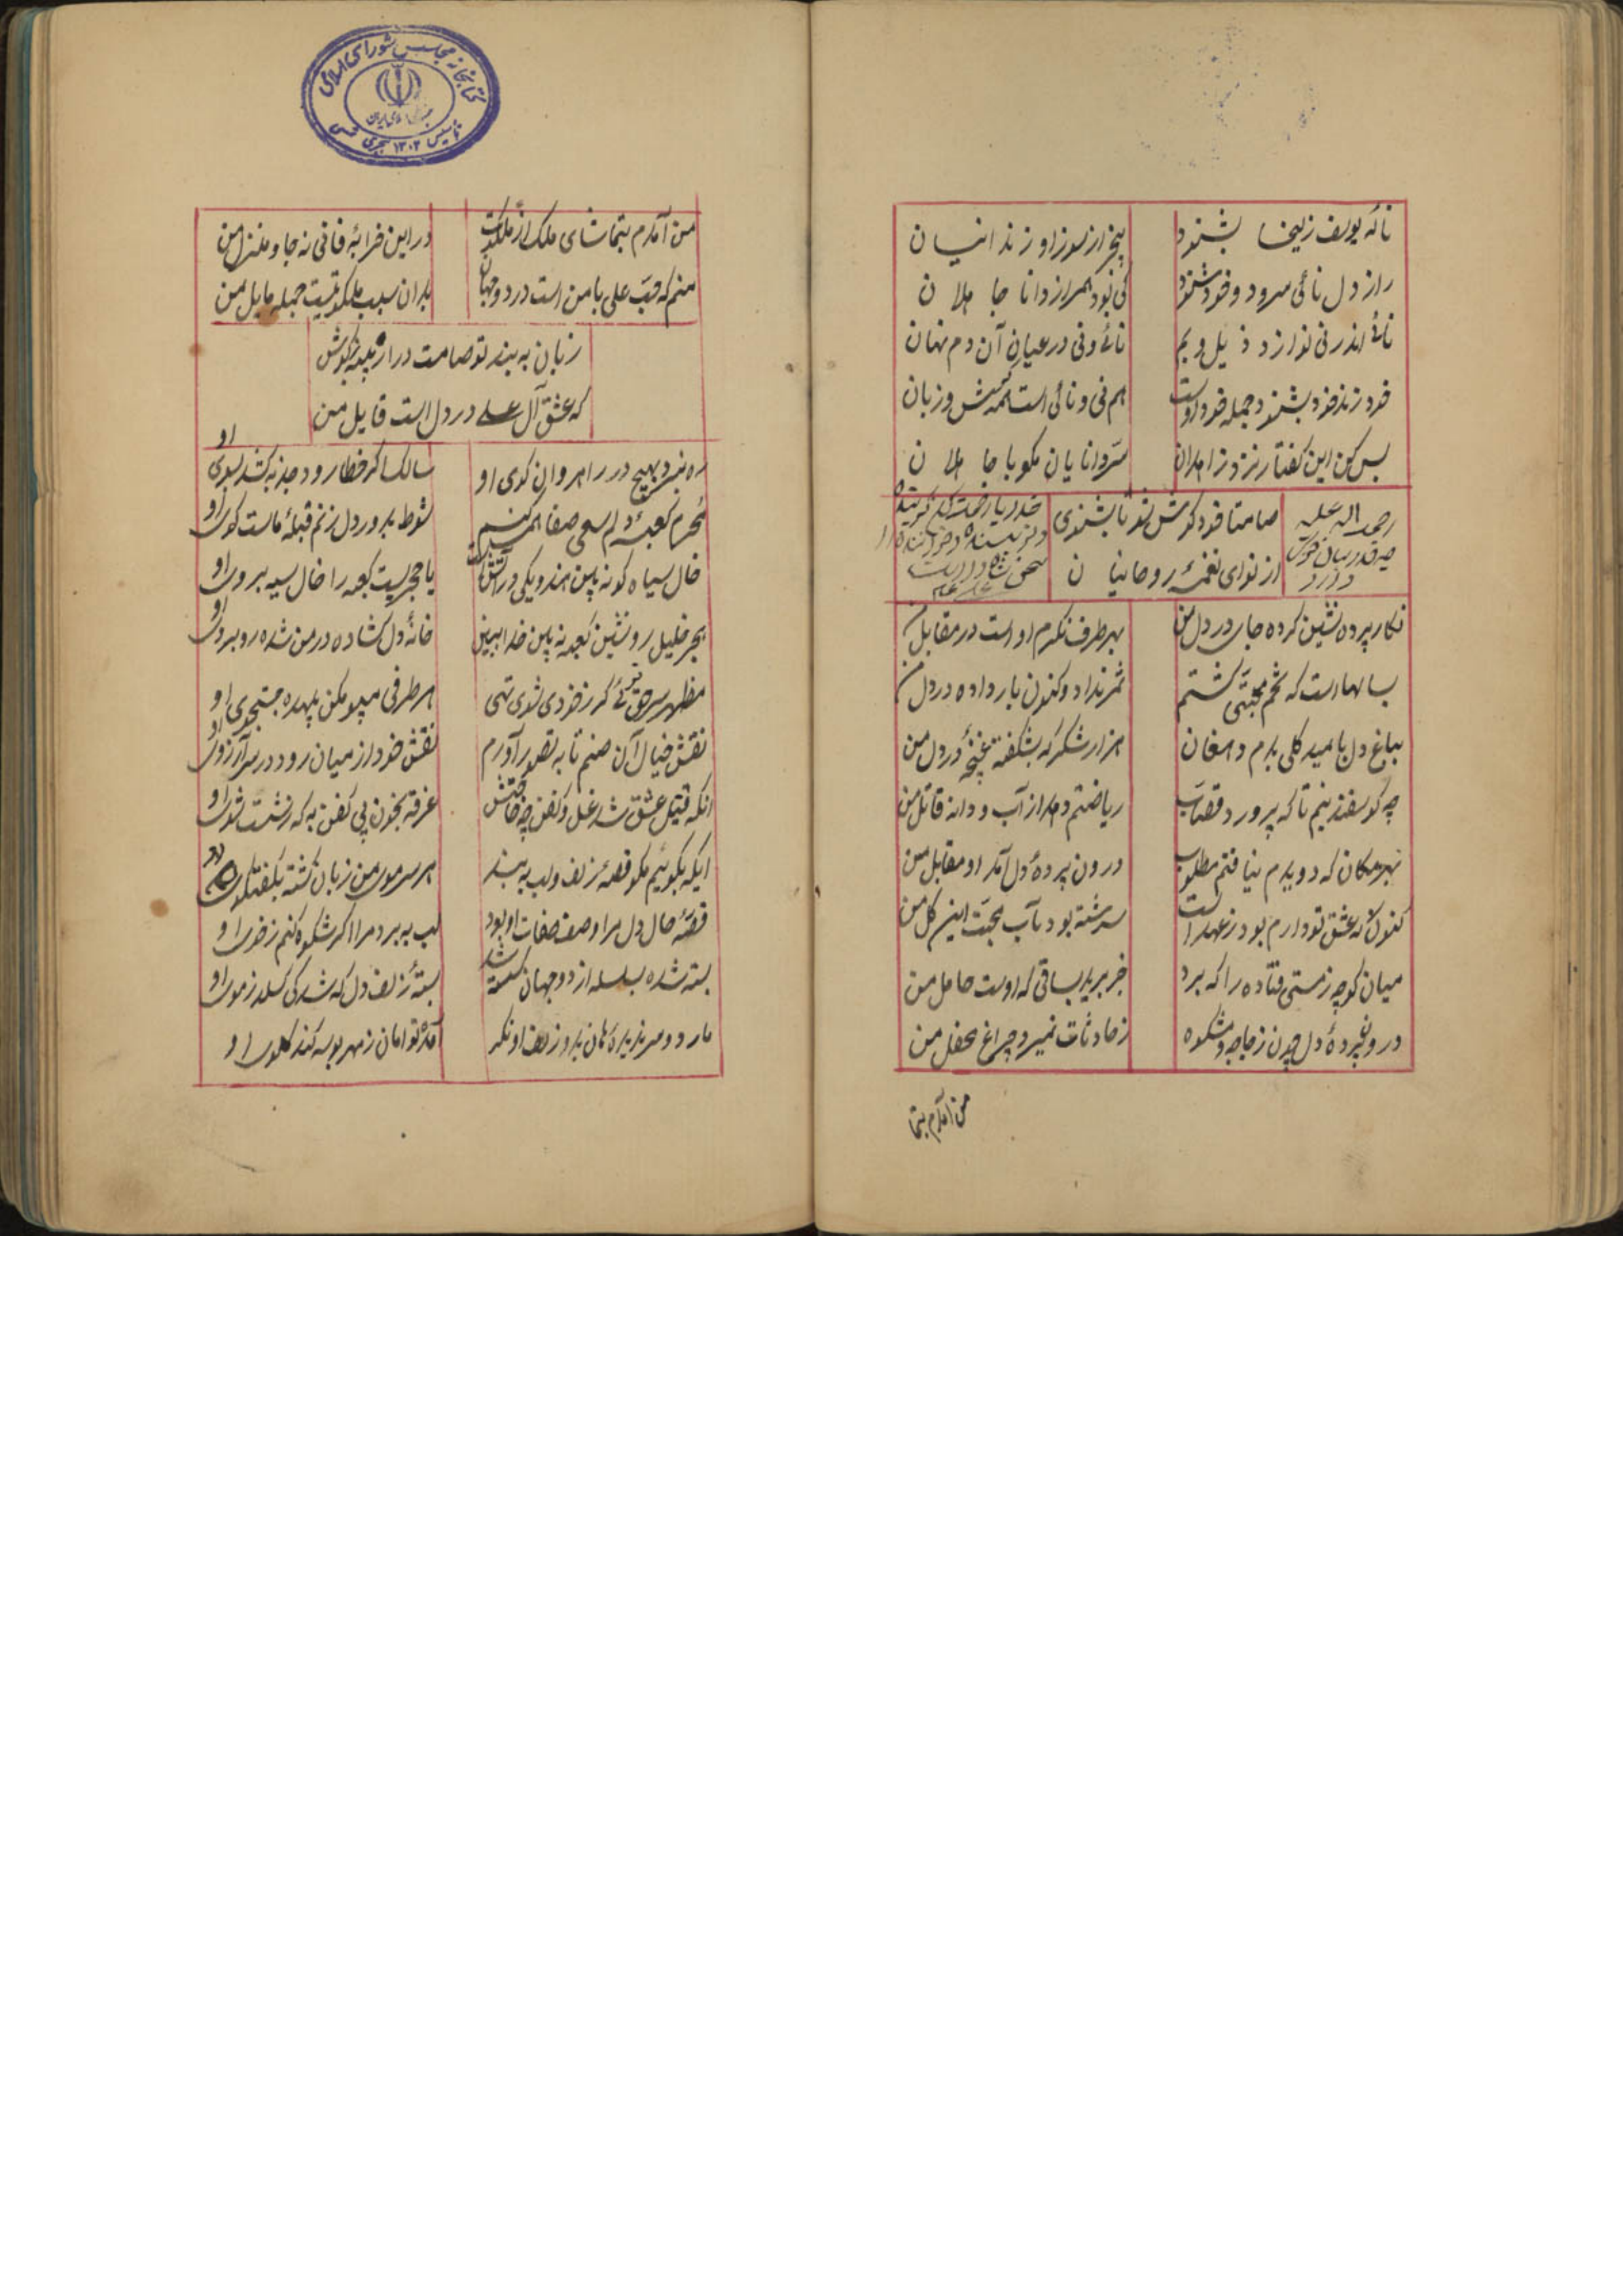 نالهٔ یوسف زلیخا بشنود
بیخبر از سوز او زندانیان
راز دل نائی سرود و خود شنود
کی بود همراز دانا جاهلان
نائی اندر نی نوازد ذیل و بم
نائی و نی در عیان آن دم نهان
خود زند خود بشنود جمله خود اوست
هم نی و نائی است هم‌ش و زبان
بس کن این گفتار نزد زاهدان
سر دانایان مگو با جاهلان
رحمه الله علیه
صامتا خود گوش شو تا بشنوی
از نوای نغمهٔ روحانیان
نگار پرده نشین کرده جای در دل من
بهر طرف نگرم او است در مقابل من
سالهاست که تخم محبتی کشتم
ثمر نداد و کنون بار داده در دل من
بباغ دل بامید گلی بدم دهقان
هزار شکر که بشکفته غنچهٔ در دل من
چه گوسفند نیم تا که پرورد قصاب
ریاضتم دهد از آب و دانه قاتل من
بهر مکان که دویدم نیافتم مطلوب
درون پردهٔ دل آمد او مقابل من
کنون نه عشق تو دارم بود ز عهد الست
سرشته بود بآب محبت این گل من
میان کوچه ز مستی فتاده را که برد
خبر برید بساقی که اوست حامل من
درون پردهٔ دل چون زجاجه و مشکوه
ز حادثات نمیرد چراغ محفل من
من آمدم بتما
کتابخانه مجلس شورای اسلامی
جمهوری اسلامی ایران
تاسیس ۱۳۰۲ هجری شمسی
من آمدم بتماشای ملک از ملکوت
در این خرابهٔ فانی نه جا و منزل من
منم که حب علی با من است در دو جهان
بدان سبب ملکوتیست جمله مایل من
زبان به بند تو صامت در از پنبه بگوش
که عشق آل علی در دل است قایل من
ره نبرد بهیچ در راهروان کوی او
سالک اگر خطا رود جذبه کشد بسوی او
محرم کعبهٔ دلم سعی صفا همی کنم
شوط بدور دل زنم قبلهٔ ماست کوی او
خال سیاه گونه بین هندویکی در آتش است
یا حجریست کعبه را خال سیه بروی او
بحر خلیل رو نشین کعبه نه بین خدا ببین
خانهٔ دل گشاده در من شده روبروی او
مظهر سر حق توئی گر ز خودی شوی تهی
هر طرفی مپو مکن بیهده جستجوی او
نقش خیال آن صنم تا به تصور آورم
نقش خود از میان رود در سر آرزوی او
آنکه قتیل عشق شد غسل و کفن چه حاجتش
غرقه بخون بی کفن به که ز شست شوی او
ایکه بگوئیم مگو قصهٔ زلف و لب به بند
هر سر موی من زبان گشته بگفتگوی او
قصهٔ حال دل مرا وصف صفات او بود
لب به برد مرا اگر شکوه کنم ز خوی او
بسته شده بسلسله از دو جهان گسسته شد
بستهٔ زلف دل که شد کی گسلد ز موی او
مار دو سر ندیدهٔ کمان بدو زلف او نگر
آمده توامان ز مهر بوسه کند گلوی او